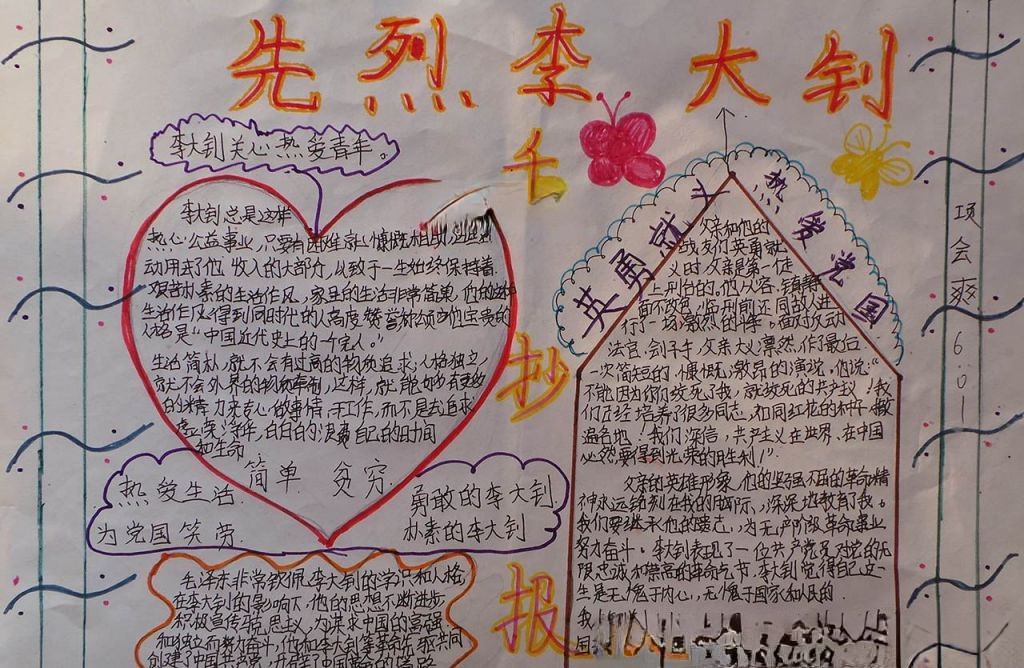 先烈李大钊
手抄报
李大钊关心热爱青年。
李大钊总是这样
热心公益事业,只要有困难就慷慨相助,
动用去了他收入的大部分,从致于一生始终保持着
艰苦朴素的生活作风,家里的生活非常简单,他的这种
生活作风得到同时代的人高度赞誉
人格是“中国近代史上的一个完人。”
生活简朴,就不会有过高的物质追求;人格独立,
就不会外界的物质牵制,这样,就能够有更多
的精力来专心做事情、干工作,而不是去追求
虚荣、浮华,白白的浪费自己的时间
和生命
简单 贫穷
热爱生活
为党国笑劳
勇敢的李大钊
朴素的李大钊
毛泽东非常钦佩李大钊的学识和人格
在李大钊的影响下,他的思想不断进步
积极宣传马克思主义,为谋求中国的富强
和独立而努力奋斗,他和李大钊等革命先驱共同
创建了中国共产党,
英勇就义
热爱党国
父亲和他的
战友们英勇就
义时,父亲是第一个走
上刑台的,他从容、镇静,
面不改色,临刑前还同敌人进
行了一场激烈的斗争。面对反动
法官、刽子手,父亲大义凛然,作了最后
一次简短的、慷慨、激昂的演说,他说:“
不能因为你们绞死了我,就绞死的共产主义!我
们已经培养了很多同志,如同红花的种子,撒
遍各地!我们深信,共产主义在世界、在中国
必然要得到光荣的胜利!”
父亲的英雄形象,他的坚强不屈的革命精
神永远铭刻在我的脑际,深深地教育了我。
我们要继承他的遗志,为无产阶级革命事业
努力奋斗。李大钊表现了一位共产党员对党的无
限忠诚和崇高的革命气节,李大钊觉得自己这一
生是无愧于内心,无愧于国家和人民的.
我
国
项会爽 6.01